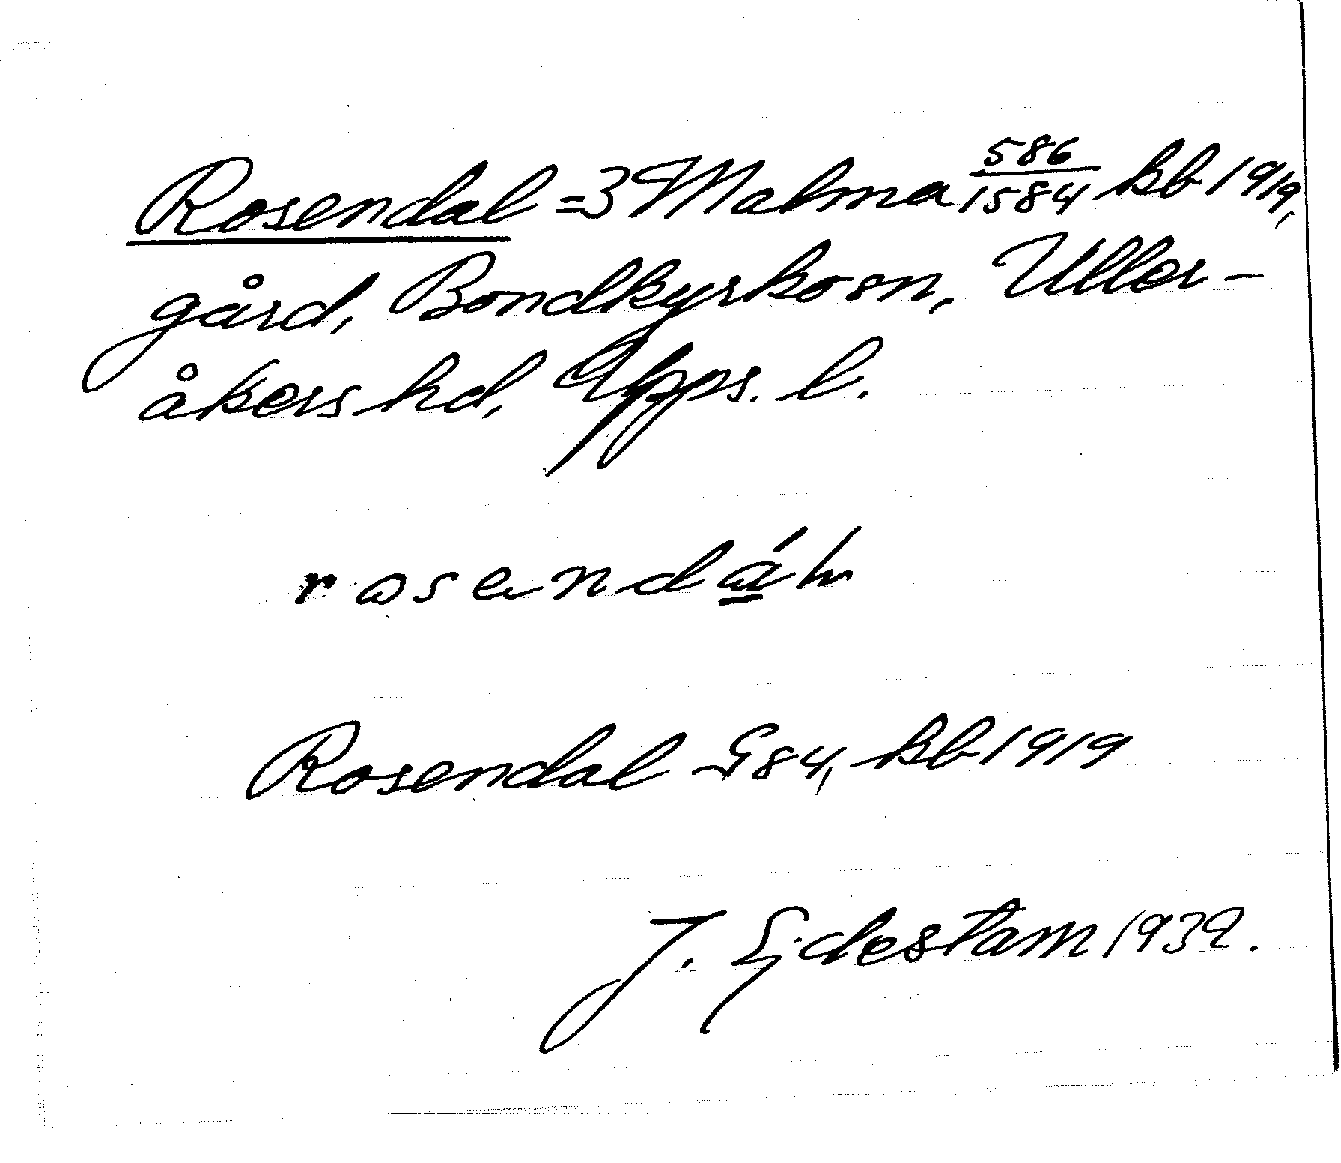 Rosendal = 3 Malma 586/1584 kb 1919,
gård, Bondkyrko sn, Uller-
åkers hd, Upps. l.
rosendáh
Rosendal G 84, kb 1919
J. Ejdestam 1932.